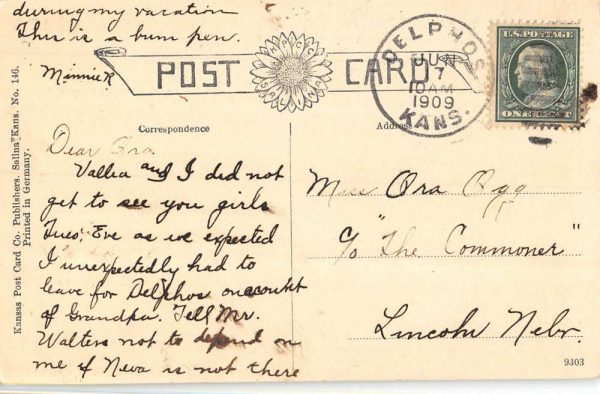 during my vacation
This is a bum pen.
Minnie R.
POST CARD
DELPHOS
JUN
7
10AM
1909
KANS.
U.S. POSTAGE
ONE CENT
Correspondence
Address
Dear Ora
Vallia and I did not
get to see you girls
Tues. Eve as we expected
I unexpectedly had to
leave for Delphos on acount
of Grandpa. Tell Mr.
Walters not to depend on
me if Neva is not there
Miss Ora Ogg
c/o "The Commoner"
Lincoln Nebr.
Kansas Post Card Co. Publishers. Salina, Kans. No. 146.
Printed in Germany.
9303